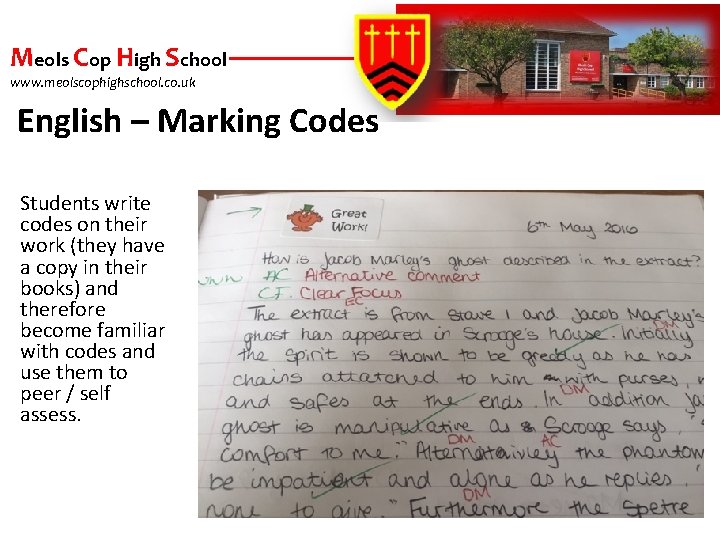 Meols Cop High School
www.meolscophighschool.co.uk
English – Marking Codes
Students write
codes on their
work (they have
a copy in their
books) and
therefore
become familiar
with codes and
use them to
peer / self
assess.
Great
Work!
6th May 2016
How is Jacob Marley's ghost described in the extract?
AC Alternative comment
C.F. Clear Focus
EC
The extract is from Stave 1 and Jacob Marley's
DM
ghost has appeared in Scrooge's house. Initially
the spirit is shown to be greedy as he has
chains attatched to him with purses,
DM
and safes at the ends. In addition
ghost is manipulative as Scrooge says, "
DM AC
comfort to me." Alternativley the phantom
be impatient and alone as he replies,
DM
none to give." Furthermore the Spetre